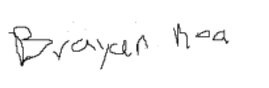 Brayan Roa